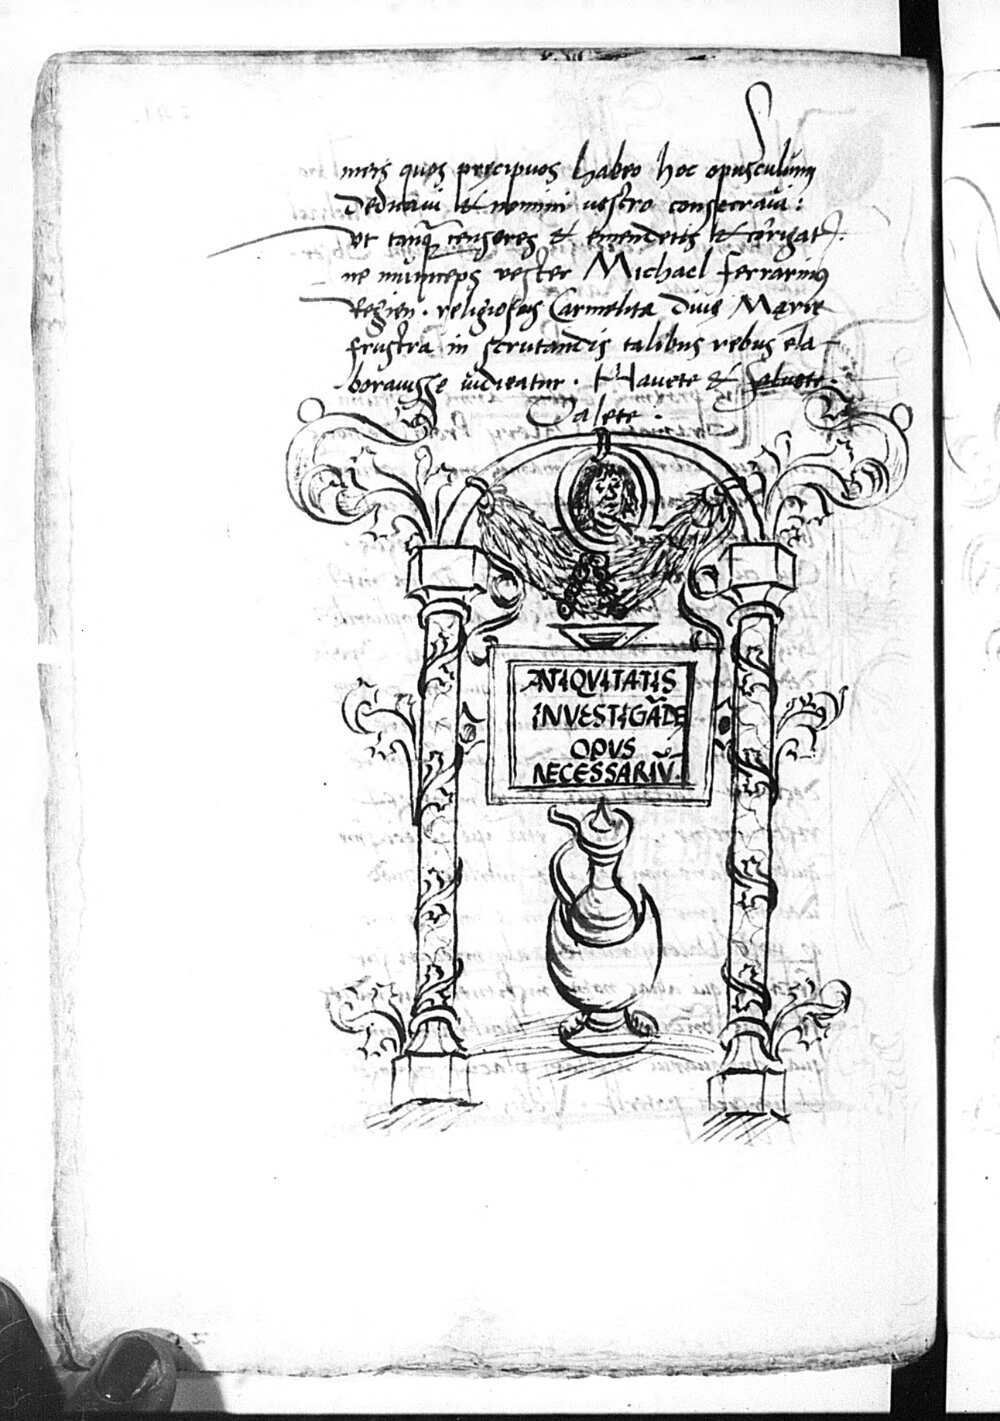 meis quos precipuos habeo hoc opusculum
Dedicavi & nomini vestro consecravi:
ut tanq̃ censores & emendetis & corrigatis:
ne municeps vester Michael Ferrarinus
Regien. religiosus Carmelita Dive Marie
frustra in scrutandis talibus rebus ela
borauisse videatur. Hauete & salvete.
Valete.
ANTIQVITATIS
INVESTIGÃDE
OPVS
NECESSARIV̄.